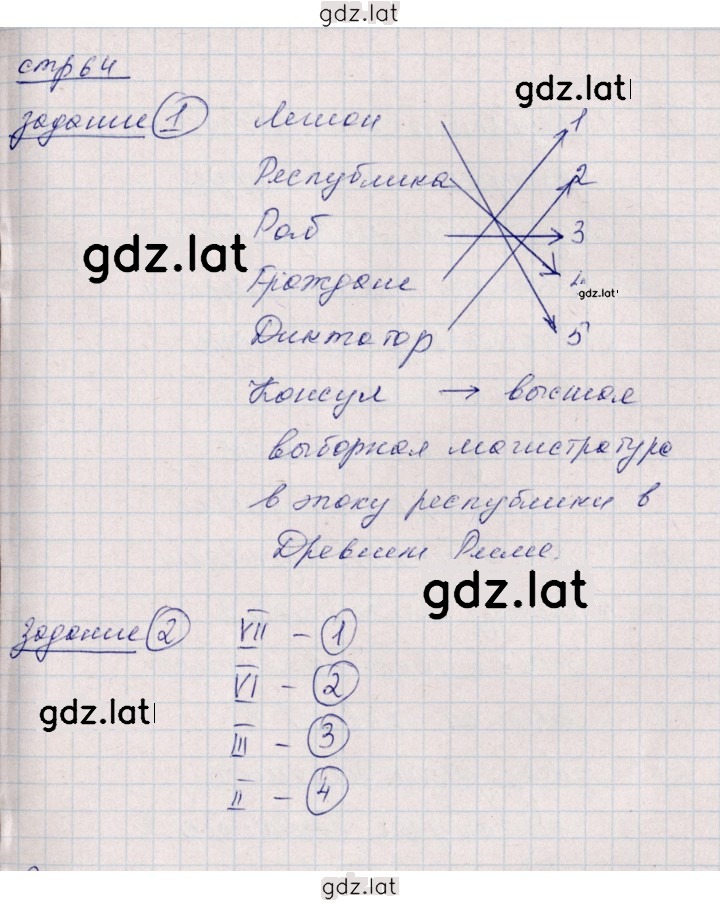 gdz.lat
стр 64
gdz.lat
Задание 1 Легион 1
Республика 2
Раб 3
gdz.lat
Граждане 4
gdz.lat
Диктатор 5
Консул → высшая
выборная магистратура
в эпоху республики в
Древнем Риме.
gdz.lat
Задание 2 VII - 1
VI - 2
gdz.lat
III - 3
II - 4
gdz.lat